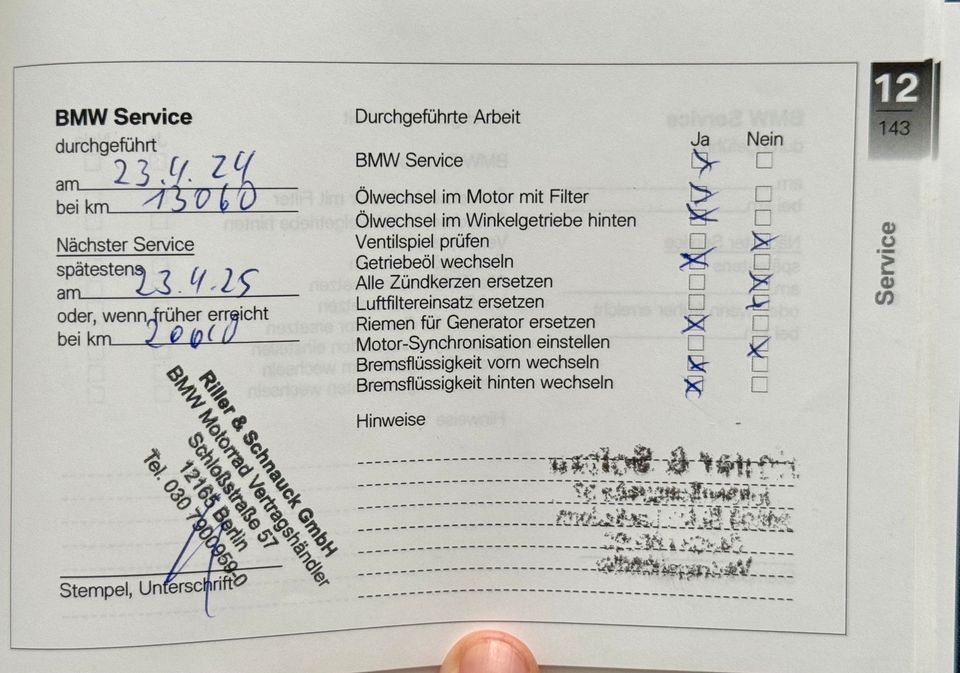 BMW Service
durchgeführt
am 23.4.24
bei km 13060
Nächster Service
spätestens
am 23.4.25
oder, wenn früher erreicht
bei km
Riller & Schnauck GmbH
BMW Motorrad Vertragshändler
Schloßstraße 57
12165 Berlin
Tel. 030 7900959-0
Stempel, Unterschrift
Durchgeführte Arbeit
Ja Nein
BMW Service
Ölwechsel im Motor mit Filter
Ölwechsel im Winkelgetriebe hinten
Ventilspiel prüfen
Getriebeöl wechseln
Alle Zündkerzen ersetzen
Luftfiltereinsatz ersetzen
Riemen für Generator ersetzen
Motor-Synchronisation einstellen
Bremsflüssigkeit vorn wechseln
Bremsflüssigkeit hinten wechseln
Hinweise
12
143
Service